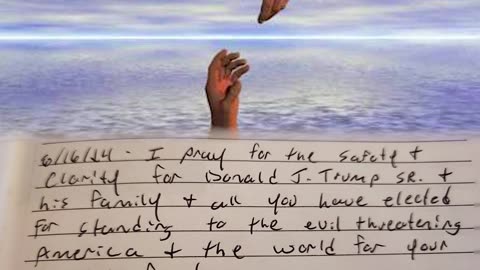 6/16/24 - I pray for the safety +
Clarity for Donald J. Trump SR. +
his family + all you have elected
for standing to the evil threatening
America + the world for your